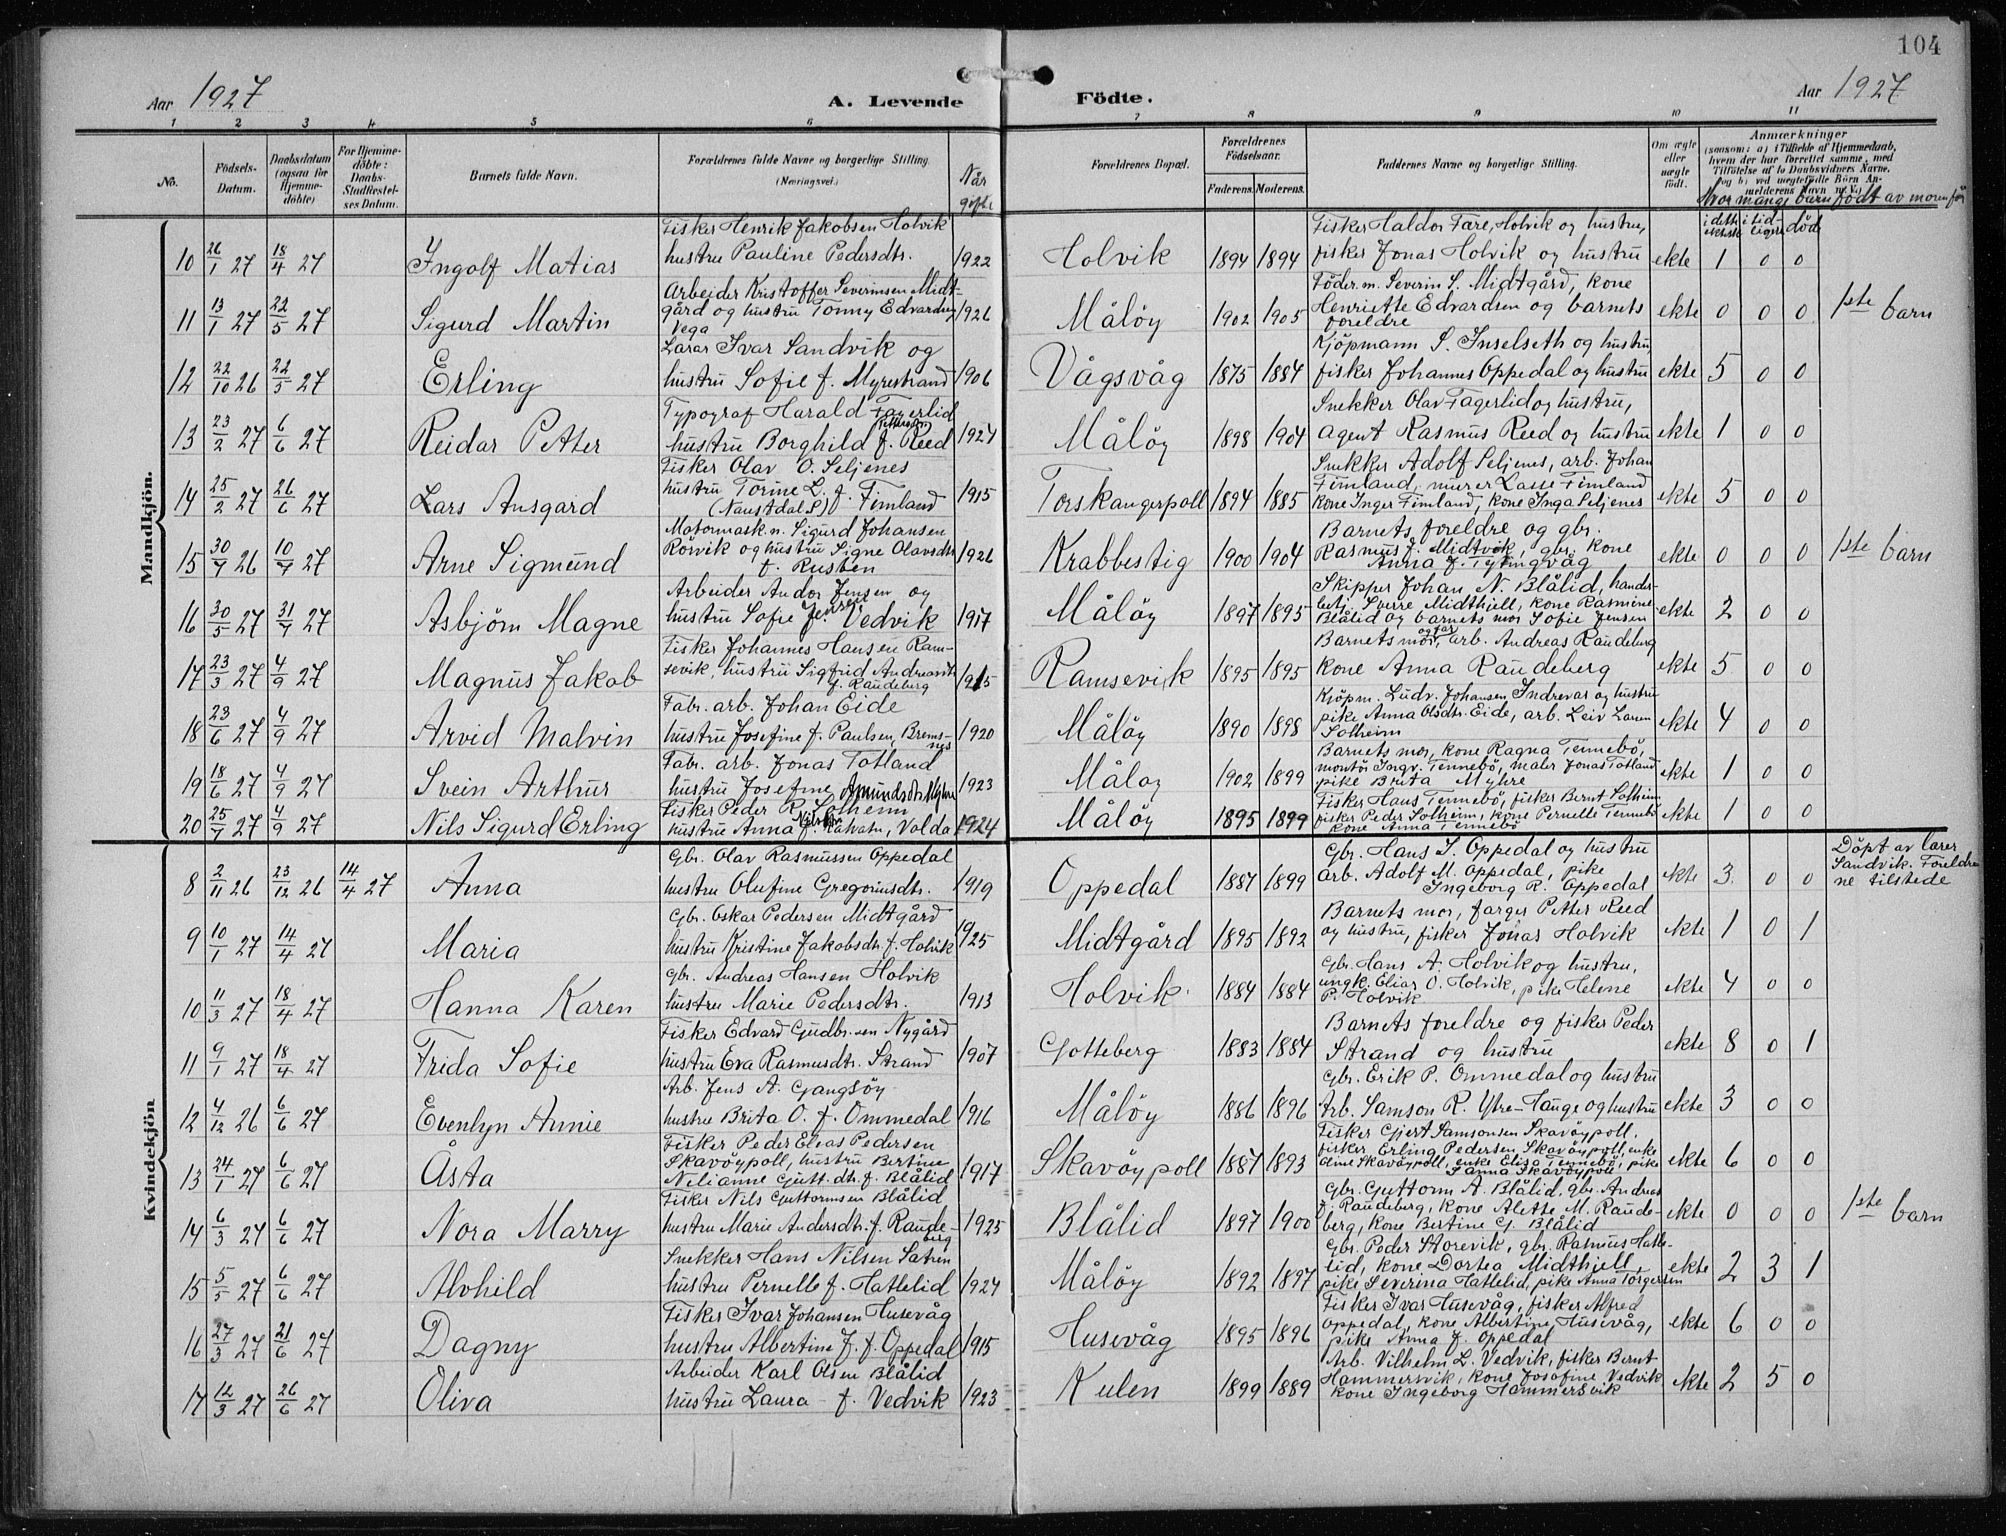 104
Aar 1927
A. Levende Födte.
Aar 1927
1 2 3 4 5 6 7 8 9 10 11
No.
Födsels-Datum.
Daabsdatum (ogsaa for Hjemme-döbte)
For Hjemme-döbte: Daabs-Stadfæstel-ses Datum.
Barnets fulde Navn.
Forældrenes fulde Navne og borgerlige Stilling.
(Næringsvei.)
Når gift.
Forældrenes Bopæl.
Forældrenes Födselsaar.
Faderens. Moderens.
Faddernes Navne og borgerlige Stilling.
Om ægte eller uægte födt.
Anmærkninger
(saasom: a) i Tilfælde af Hjemmedaab,
hvem der har forrettet samme, med
Tilföielse af to Daabsvidners Navne.
og b) ved uægtefödte Börn An-
melderens Navn m. V.)
Hvor mange barn födt av moren før
i dette ektesk. i tid-ligere död
Mandkjön.
10 26/1 27 18/4 27 Ingolf Matias
Fisker Henrik Jakobsen Holvik
hustru Pauline Pedersdtr. 1922
Holvik 1894 1894
Fisker Haldor Fåre, Holvik og hustru,
fisker Jonas Holvik og hustru
ekte 1 0 0
11 13/1 27 22/5 27 Sigurd Martin
Arbeider Kristoffer Severinsen Midt-
gård og hustru Tonny Edvardsen 1926
Vega
Målöy 1902 1905
Föder.m. Severin S. Midtgård, kone
Henriette Edvardsen og barnets
foreldre
ekte 0 0 0 1ste barn
12 22/10 26 22/5 27 Erling
Lärar Ivar Sandvik og
hustru Sofie f. Myrestrand 1906
Vågsvåg 1875 1884
Kjöpmann S. Inselseth og hustru,
fisker Johannes Oppedal og hustru
ekte 5 0 0
13 23/2 27 6/6 27 Reidar Petter
Typograf Harald Fagerlid
hustru Borghild f. Reed 1924
Målöy 1898 1904
Snekker Olav Fagerlid og hustru,
agent Rasmus Reed og hustru
ekte 1 0 0
14 25/2 27 26/6 27 Lars Ansgard
Fisker Olav O. Seljenes
hustru Torine L. f. Fimland 1915
(Naustdal S)
Torskangerpoll 1894 1885
Snekker Adolf Seljenes, arb. Johan
Fimland, murer Lasse Fimland
kone Inger Fimland, kone Inga Seljenes
ekte 5 0 0
15 30/7 26 10/7 27 Arne Sigmund
Motormask.n. Sigurd Johansen
Rörvik og hustru Signe Olavsdtr. 1926
f. Rusten
Krabbestig 1900 1904
Barnets foreldre og gbr.
Rasmus J. Midtvik, gbr. kone
Anna J. Tytingvåg
ekte 0 0 0 1ste barn
16 30/5 27 31/7 27 Asbjörn Magne
Arbeider Andor Jensen og
hustru Sofie Jensen f. Vedvik 1917
Målöy 1897 1895
Skipper Johan N. Blålid, handels-
betj. Sverre Midthjell, kone Rasmine
Blålid og barnets mor Sofie Jensen
ekte 2 0 0
17 23/3 27 4/9 27 Magnus Jakob
Fisker Johannes Hansen Ram-
sevik, hustru Sigfrid Andreasdtr. 1915
f. Raudeberg
Ramsevik 1895 1895
Barnets mor og far, arb. Andreas Raudeberg
kone Anna Raudeberg
ekte 5 0 0
18 23/6 27 4/9 27 Arvid Malvin
Fabr. arb. Johan Eide
hustru Josefine f. Paulsen, Brems-nes 1920
Målöy 1890 1898
Kjöpm. Ludv. Johansen Indrevår og hustru
pike Anna Olsdtr. Eide, arb. Leiv Larsen
Solheim
ekte 4 0 0
19 18/6 27 4/9 27 Svein Arthur
Fabr. arb. Jonas Totland
hustru Josefine Amundsdtr. Myhre 1923
Målöy 1902 1899
Barnets mor, kone Ragna Tennebö,
montör Ingv. Tennebö, maler Jonas Totland
pike Brita Myhre
ekte 1 0 0
20 25/7 27 4/9 27 Nils Sigurd Erling
Fisker Peder R. Solheim
hustru Anna f. Kalvatn, Volda 1924
Målöy 1895 1899
Fisker Hans Tennebö, fisker Bernt Solheim
fisker Peder Solheim, kone Pernelle Tennebö
kone Anna Tennebö
ekte 1 0 0
Kvindekjön
8 2/11 26 23/12 26 14/4 27 Anna
Gbr. Olav Rasmussen Oppedal
hustru Olufine Gregoriusdtr. 1919
Oppedal 1887 1899
Gbr. Hans S. Oppedal og hustru
arb. Adolf M. Oppedal, pike
Ingeborg R. Oppedal
ekte 3 0 0 Döpt av lärer
Sandvik. Foreldre-
ne tilstede
9 10/1 27 14/4 27 Maria
Gbr. Oskar Pedersen Midtgård
hustru Kristine Jakobsdtr. f. Holvik 1925
Midtgård 1895 1892
Barnets mor, farger Petter Reed
og hustru, fisker Jonas Holvik
ekte 1 0 1
10 11/3 27 18/4 27 Hanna Karen
Gbr. Andreas Hansen Holvik
hustru Marie Pedersdtr. 1913
Holvik 1884 1884
Gbr. Hans A. Holvik og hustru,
ungk. Elias O. Holvik, pike Helene
P. Holvik
ekte 4 0 0
11 9/1 27 18/4 27 Frida Sofie
Fisker Edvard Gudbr.sen Nygård
hustru Eva Rasmusdtr. Strand 1907
Gotteberg 1883 1884
Barnets foreldre og fisker Peder
Strand og hustru
ekte 8 0 1
12 4/12 26 6/6 27 Evenlyn Annie
Arb. Jens A. Gangsöy
hustru Brita O. f. Ommedal 1916
Målöy 1886 1896
Gbr. Erik P. Ommedal og hustru
Arb. Samson R. Ytre-Hauge og hustru
ekte 3 0 0
13 24/1 27 6/6 27 Åsta
Fisker Peder Elias Pedersen
Skavöypoll, hustru Bertine
Nilianne Gutt.dtr. f. Blålid 1917
Skavöypoll 1887 1893
Fisker Gjert Samsonsen Skavöypoll,
fisker Erling Pedersen Skavöypoll, enke
dine Skavöypoll, enke Elisa Tennebö, pike
Janna Skavöypoll
ekte 6 0 0
14 6/3 27 6/6 27 Nora Marry
Fisker Nils Guttormsen Blålid
hustru Marie Andersdtr. f. Raude-berg 1925
Blålid 1897 1900
Gbr. Guttorm A. Blålid, gbr. Andreas
J. Raudeberg, kone Alette M. Raude-
berg, kone Bertine G. Blålid
ekte 0 0 0 1ste barn
15 5/5 27 6/6 27 Alvhild
Snekker Hans Nilsen Sätren
hustru Pernelle f. Hattelid 1924
Målöy 1892 1897
Gbr. Peder Storevik, gbr. Rasmus Hatte-
lid, kone Dortea Midthjell,
pike Severina Hattelid, pike Anna Torgersen
ekte 2 3 1
16 27/3 27 21/6 27 Dagny
Fisker Ivar Johansen Husevåg
hustru Albertine J. f. Oppedal 1915
Husevåg 1895 1896
Fisker Ivar Husevåg, fisker Alfred
Oppedal, kone Albertine Husevåg,
pike Anna J. Oppedal
ekte 6 0 0
17 12/3 27 26/6 27 Oliva
Arbeider Karl Olsen Blålid
hustru Laura f. Vedvik 1923
Kulen 1899 1889
Arb. Vilhelm L. Vedvik, fisker Bernt
Hammersvik, kone Josefine Vedvik
kone Ingeborg Hammersvik
ekte 2 5 0